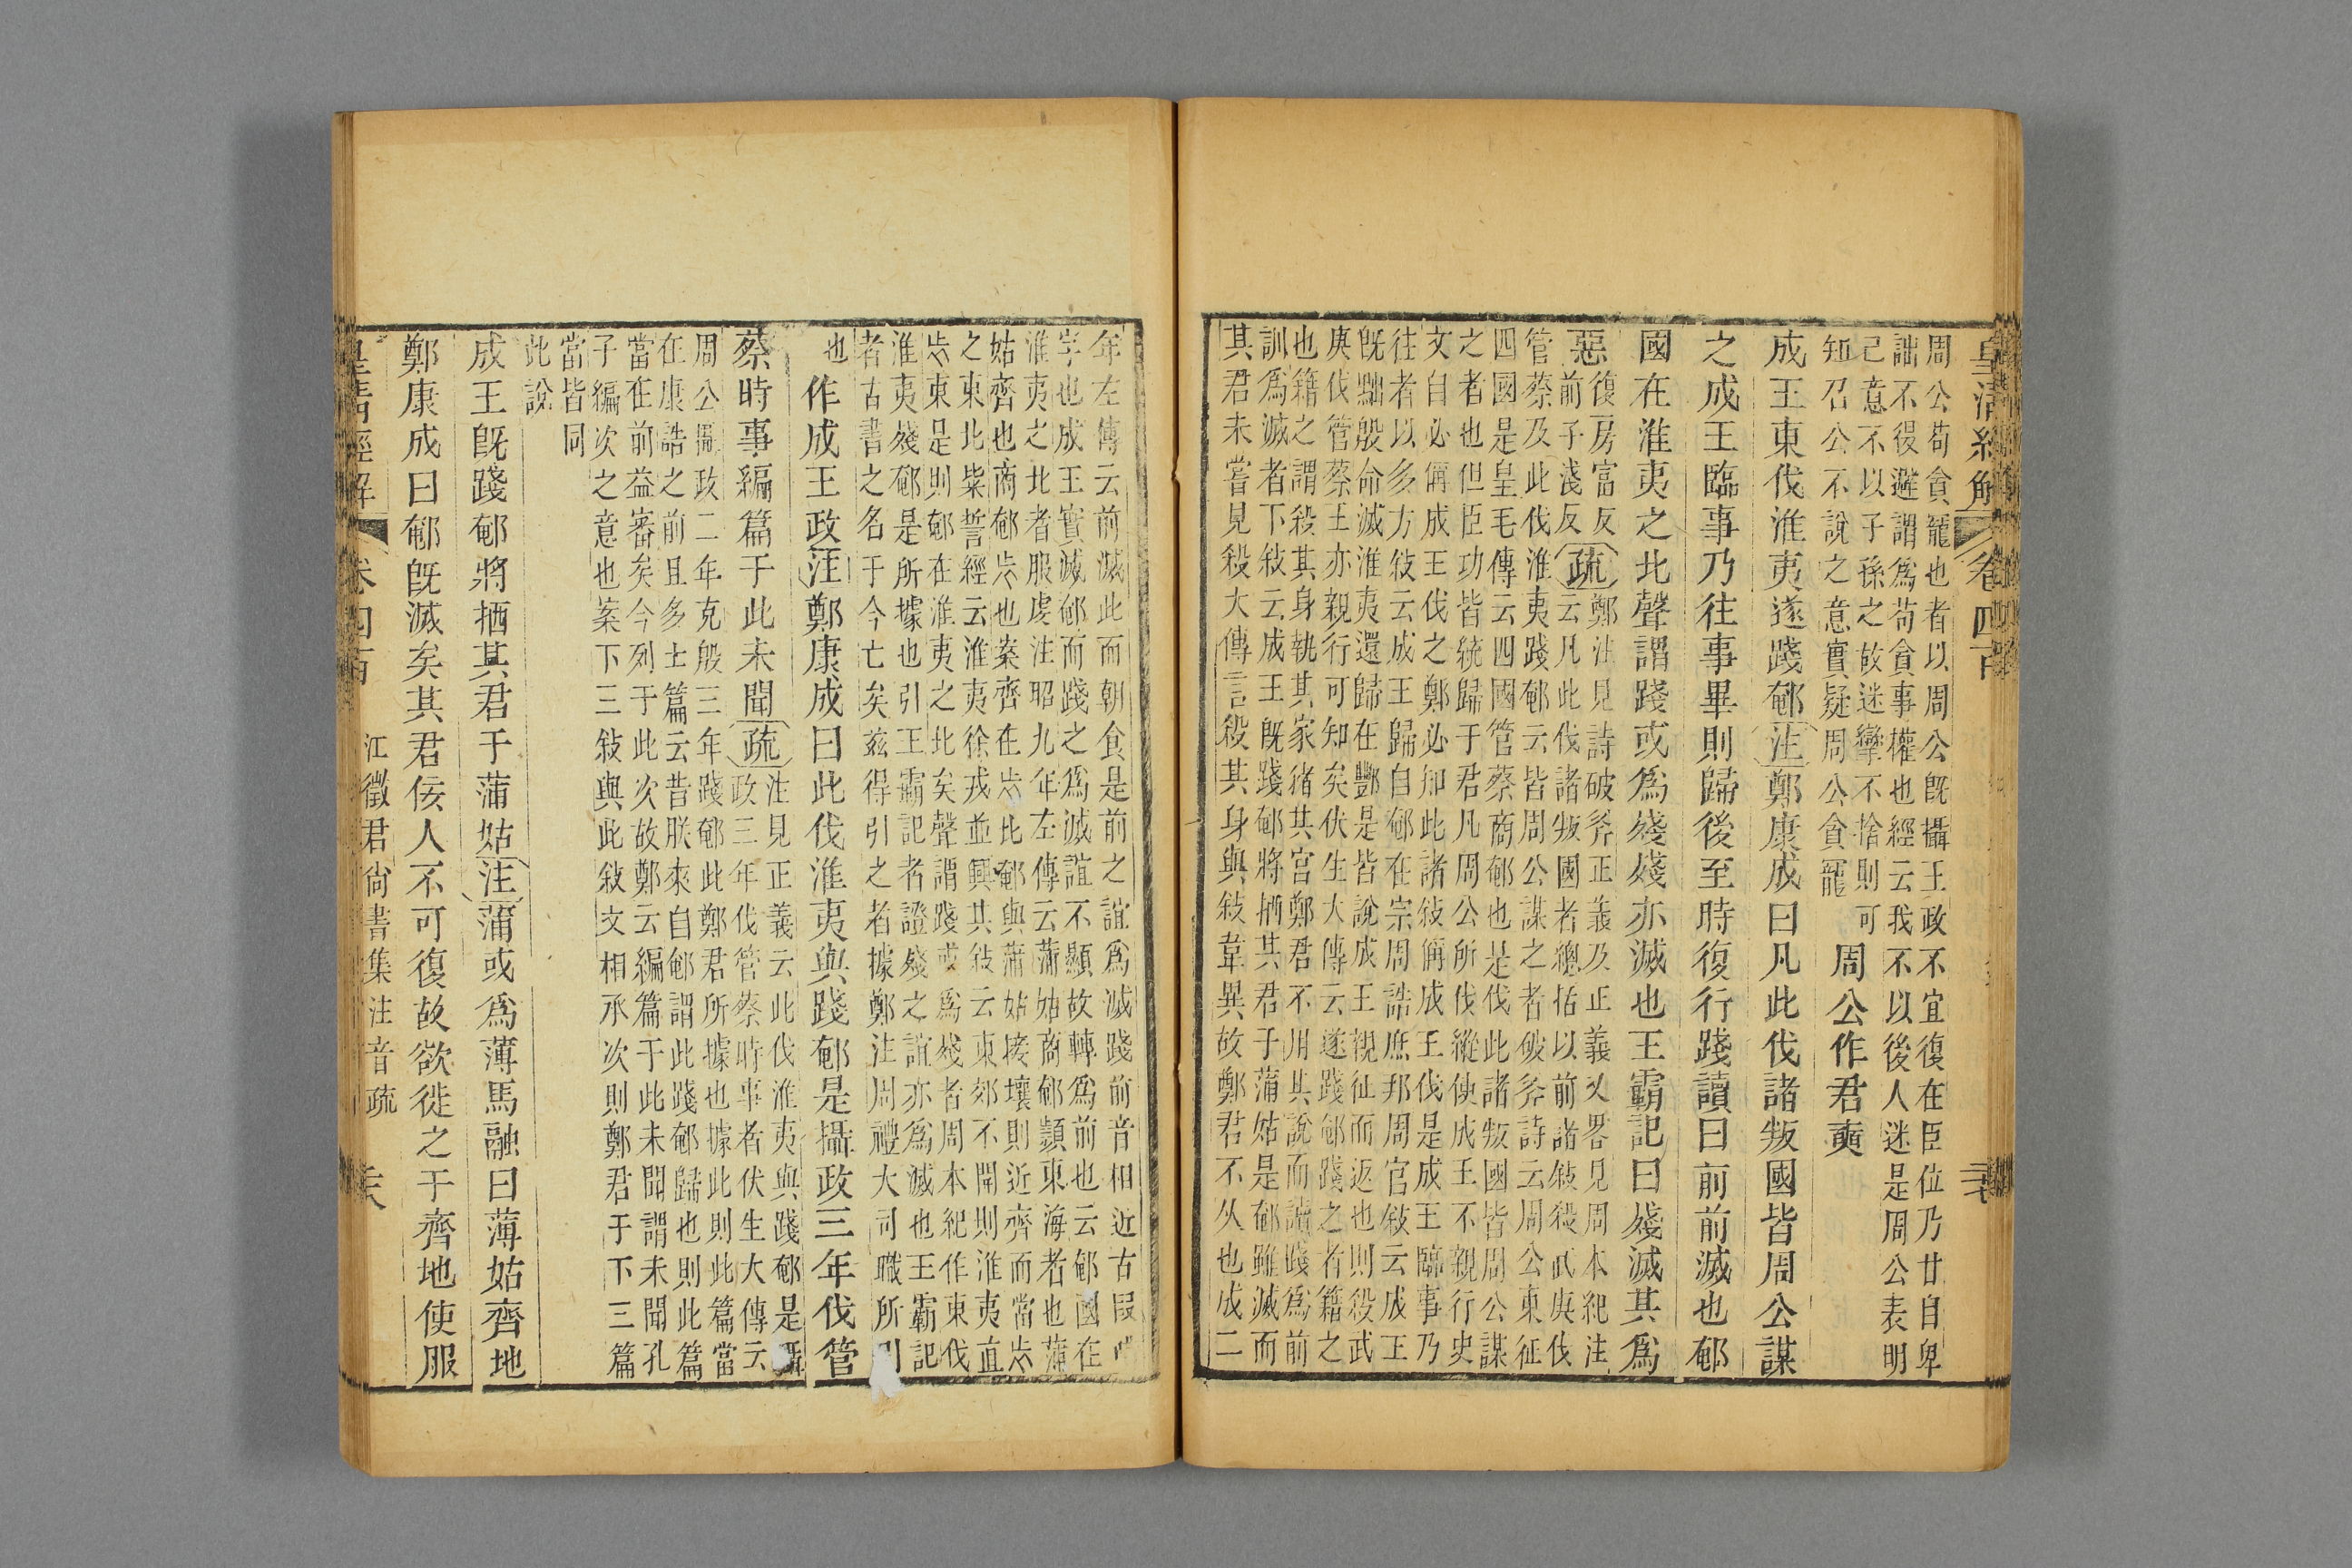 皇清經解 卷四百
周公苟貪寵也者以周公旣攝王政不宜復在臣位乃甘自卑
詘不復避謂爲苟貪事權也經云我不以後人迷是周公表明
己意不以子孫之故迷攣不捨則可
知召公不說之意實疑周公貪寵 周公作君奭
成王東伐淮夷遂踐郼注鄭康成曰凡此伐諸叛國皆周公謀
之成王臨事乃往事畢則歸後至時復行踐讀曰前前滅也郼
國在淮夷之北聲謂踐或爲殘殘亦滅也王霸記曰殘滅其爲
惡
復房富反
前子淺反
疏
鄭注見詩破斧正義及正義又畧見周本紀注
云凡此伐諸叛國者總括以前諸敍殺武庚伐
管蔡及此伐淮夷踐郼云皆周公謀之者破斧詩云周公東征
四國是皇毛傳云四國管蔡商郼也是伐此諸叛國皆周公謀
之者也但臣功皆統歸于君凡周公所伐縱使成王不親行史
文自必偁成王伐之鄭必知此諸敍偁成王伐是成王臨事乃
往者以多方敍云成王歸自郼在宗周誥庶邦周官敍云成王
旣黜殷命滅淮夷還歸在豐是皆說成王親征而返也則殺武
庚伐管蔡王亦親行可知矣伏生大傳云遂踐郼踐之者籍之
也籍之謂殺其身執其家豬其宮鄭君不用其說而讀踐爲前
訓爲滅者下敍云成王旣踐郼將捂其君于蒲姑是郼雖滅而
其君未嘗見殺大傳言殺其身與敍韋異故鄭君不从也成二
年左傳云前滅此而朝食是前之誼爲滅踐前音相近古叚
字也成王實滅郼而踐之爲滅誼不顯故轉爲前也云郼國在
淮夷之北者服虔注昭九年左傳云蒲姑商郼顥東海者也蒲
姑齊也商郼岕也案齊在岕北郼與蒲姑接壤則近齊而當岕
之東北柴誓經云淮夷徐戎並興其敍云東郊不開則淮夷直
岕東是則郼在淮夷之北矣聲謂踐或爲殘者周本紀作東伐
淮夷殘郼是所據也引王霸記者證殘之誼亦爲滅也王霸記
者古書之名于今亡矣茲得引之者據鄭注周禮大司職所引
也 作成王政注鄭康成曰此伐淮夷與踐郼是攝政三年伐管
蔡時事編篇于此未聞疏
注見正義云此伐淮夷與踐郼是攝
政三年伐管蔡時事者伏生大傳云
周公攝政二年克殷三年踐郼此鄭君所據也據此則此篇當
在康誥之前且多士篇云昔朕來自郼謂此踐郼歸也則此篇
當在前益審矣今列于此次故鄭云編篇于此未聞謂未聞孔
子編次之意也案下三敍與此敍文相承次則鄭君于下三篇
當皆同
此說
成王旣踐郼將捂其君于蒲姑注蒲或爲薄馬融曰薄姑齊地
鄭康成曰郼旣滅矣其君佞人不可復故欲徙之于齊地使服
皇清經解 卷四百 江徵君尙書集注音疏